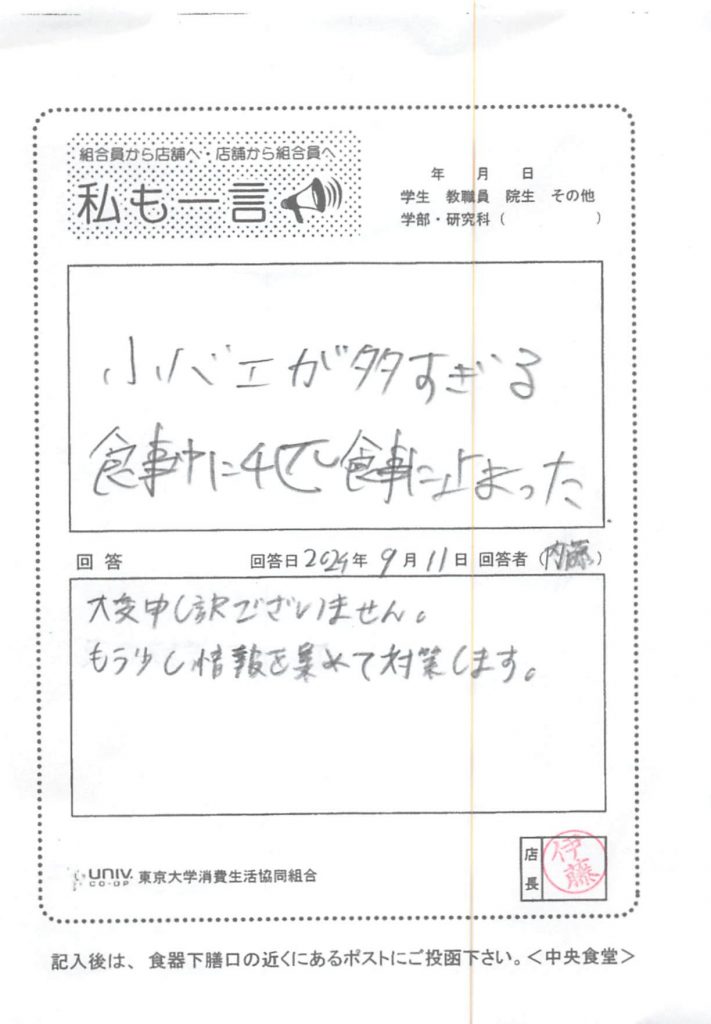 組合員から店舗へ・店舗から組合員へ
私も一言
年 月 日
学生 教職員 院生 その他
学部・研究科（ ）
小バエが多すぎる
食事中に4匹食事に止まった
回答 回答日2024年9月11日 回答者（内藤）
大変申し訳ございません。
もう少し情報を集めて対策します。
UNIV. CO-OP 東京大学消費生活協同組合
店長 伊藤
記入後は、食器下膳口の近くにあるポストにご投函下さい。＜中央食堂＞